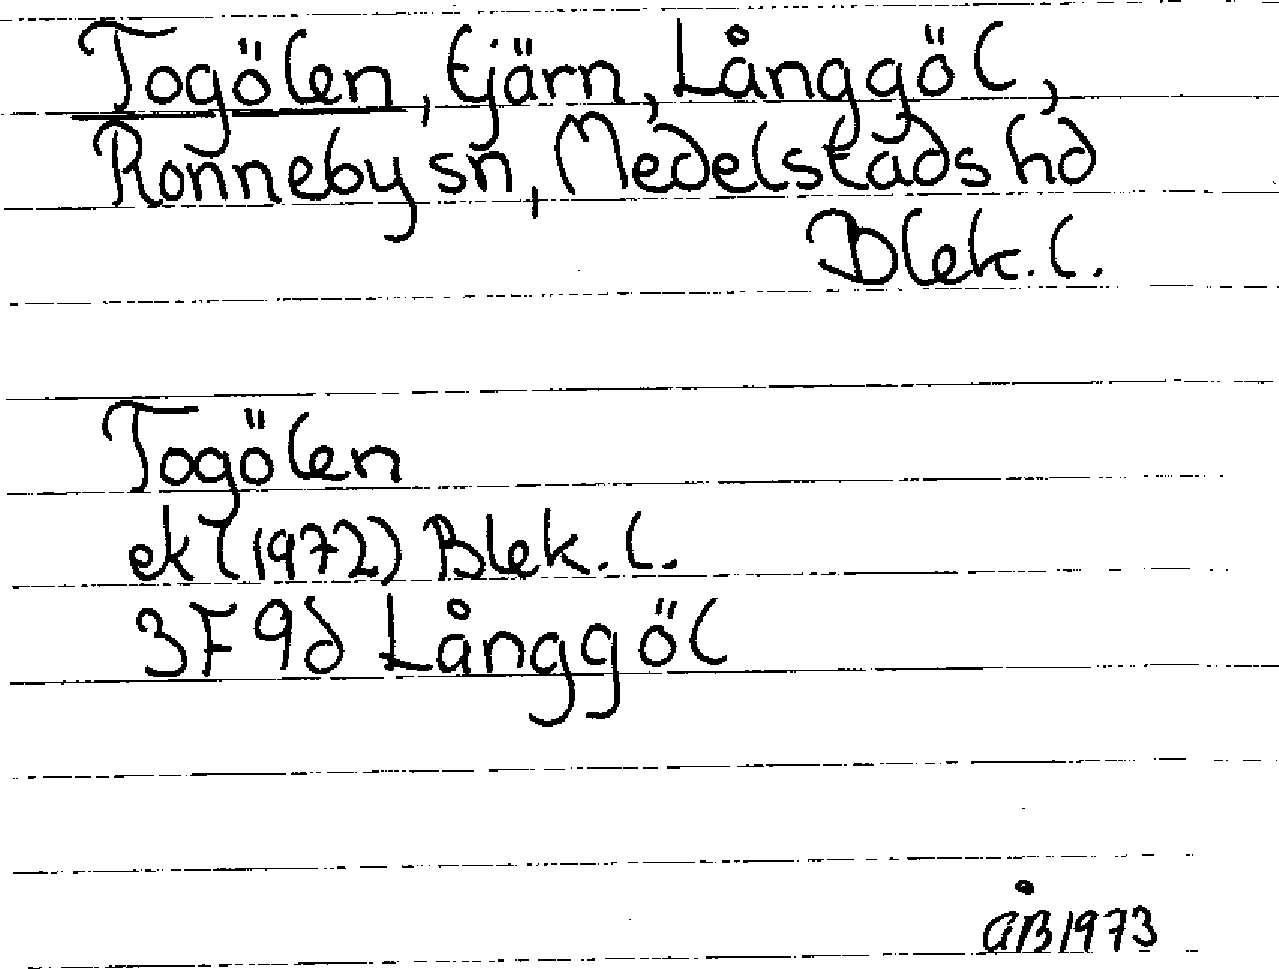 Togölen, tjärn, Långgöl,
Ronneby sn, Medelstads hd
Blek. l.
Togölen
ek (1972) Blek. l.
3F 9d Långgöl
åB 1973